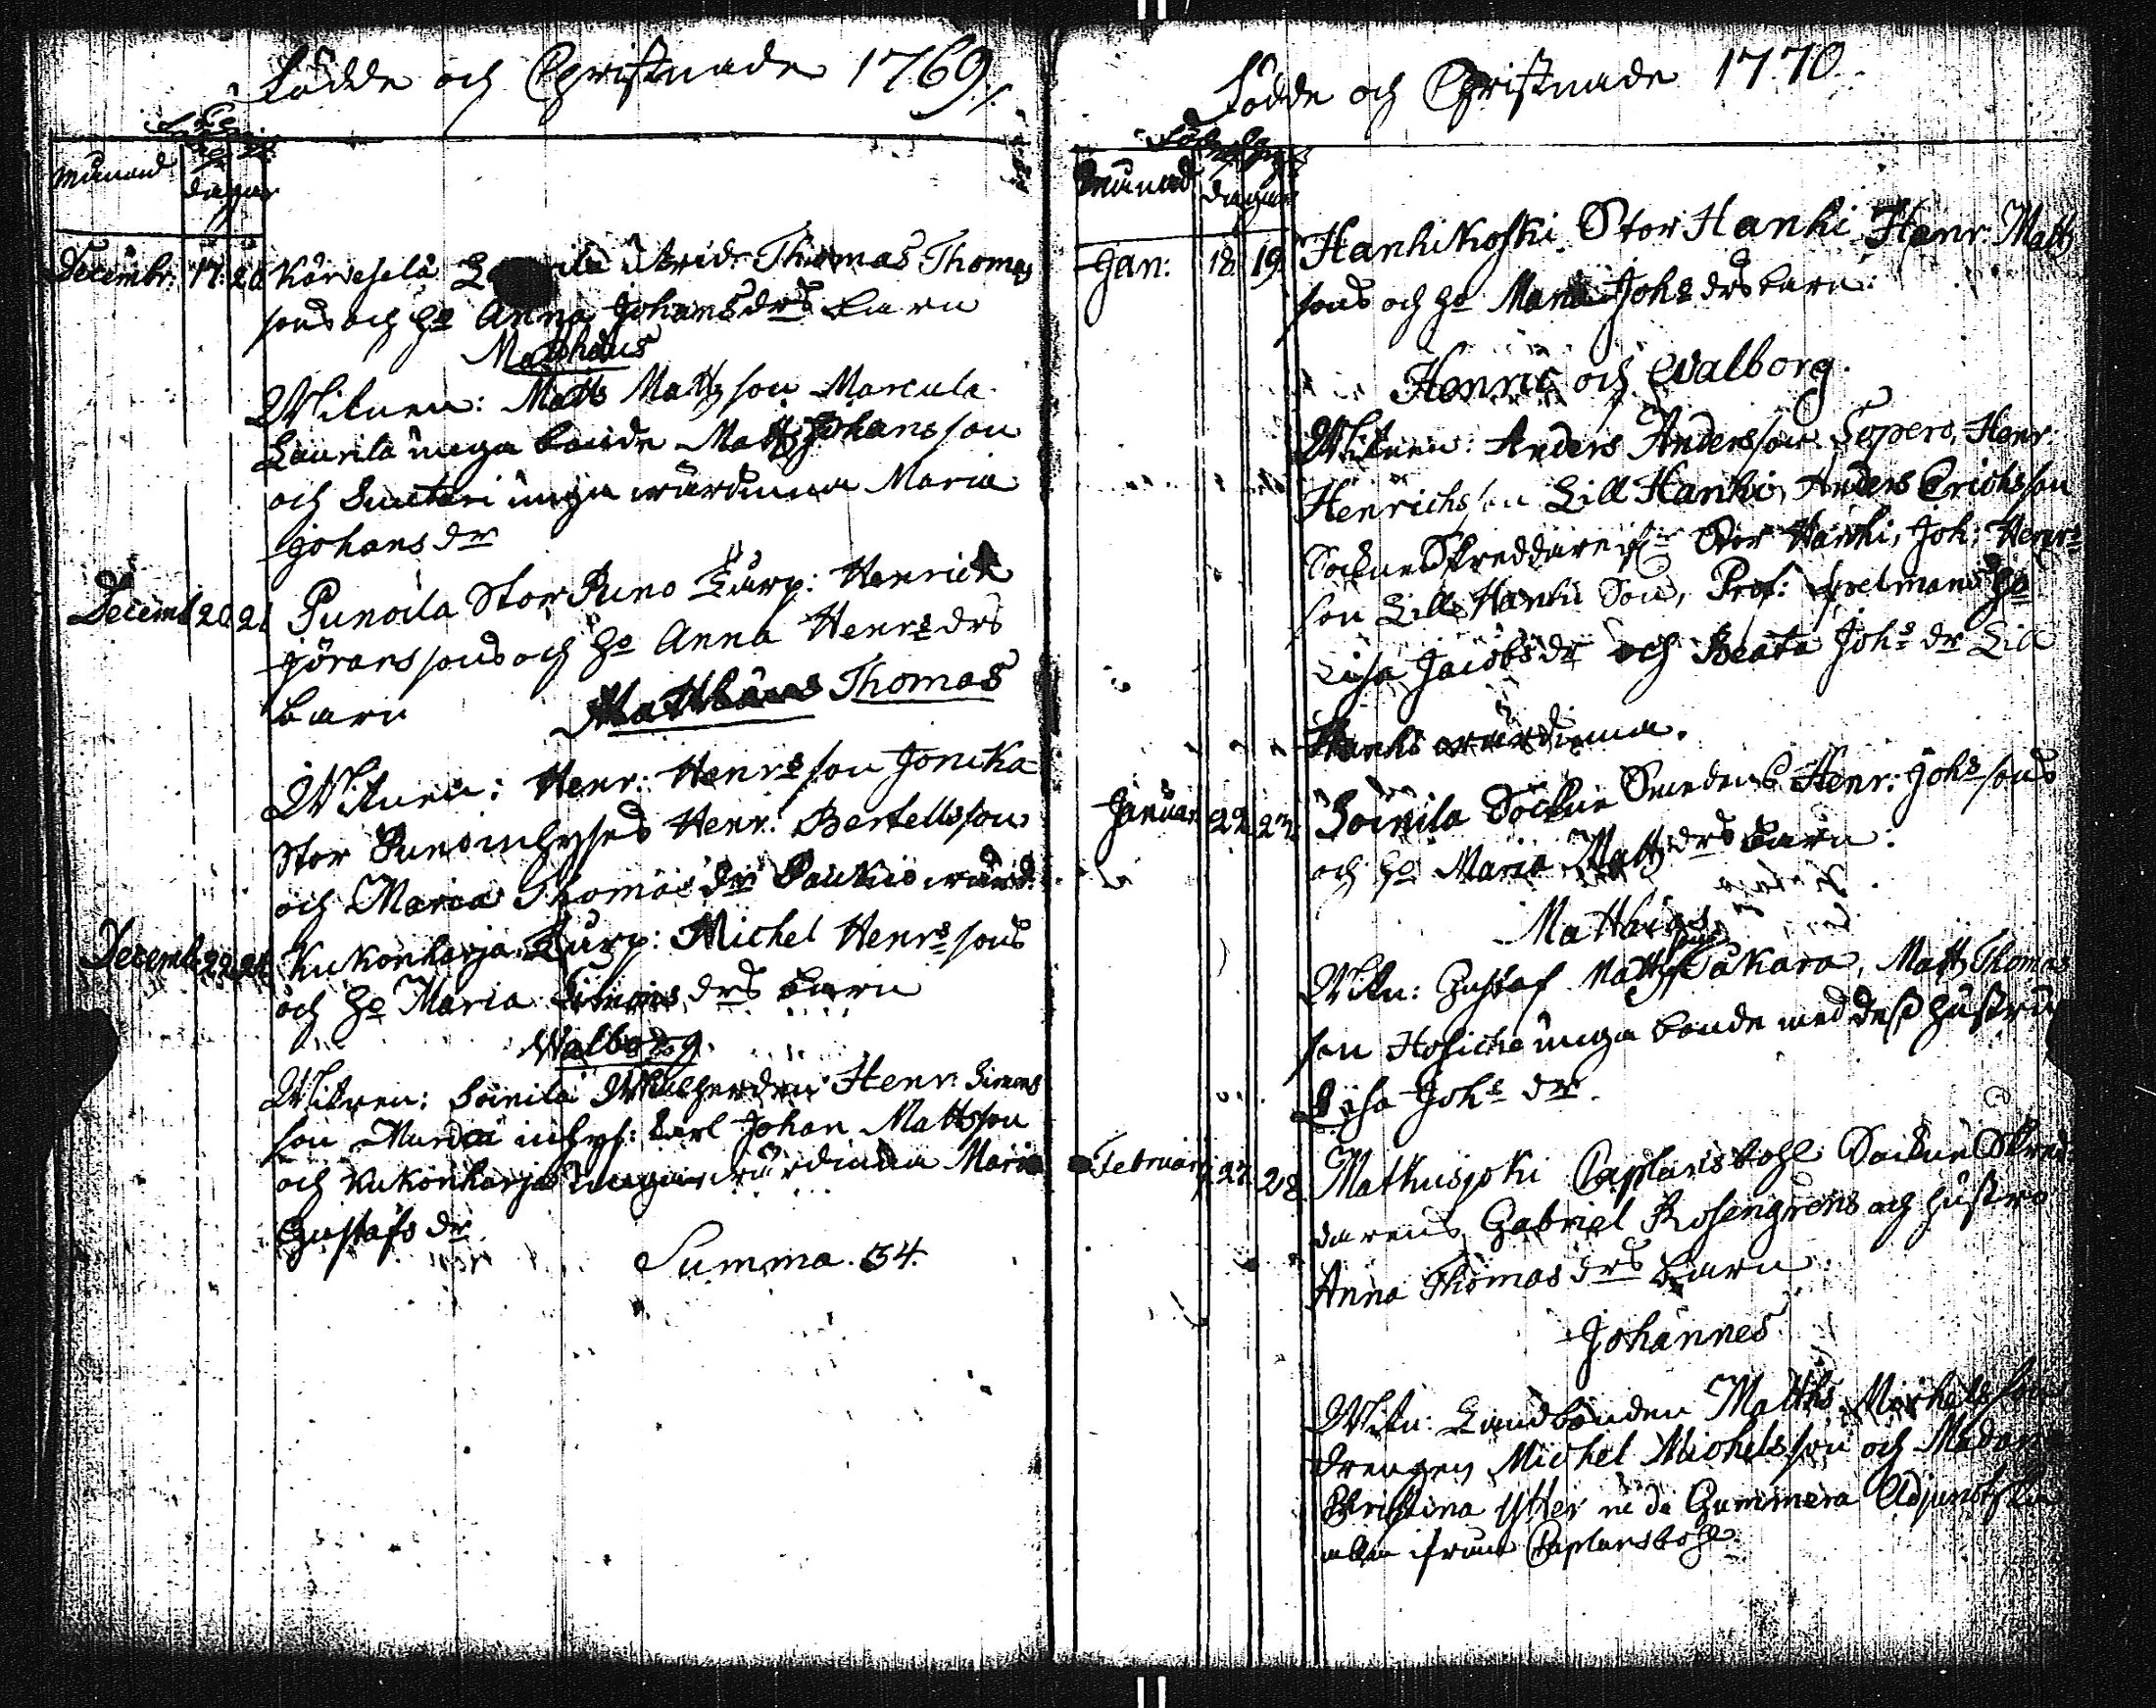 Födde och Christnade 1769
Månad
dagar
Decembr: 17. 20. Karvesela Thomas Thomas
sons och ho Anna Johans drs barn
Matthæus
Witnen: Matts Matts son Marcula
Laurila unga bonde Matts Johansson
och Suutari unga wärdinna Maria
Johans dr
Decemb 20 21 Punoila Stor Puno Torp: Henrich
Jörans sons och ho Anna Henrs drs
barn Matthæus Thomas
Witnen: Henr: Henrs son Jonika
Stor Puno inhyses Henr: Bertells son
och Maria Thomas dr Paukio wärd:
Decemb 22 26 Kukonharja Torp: Michel Henrs sons
och ho Maria Simons drs barn
Walborg
Witnen: Soinila Henr: Simons
son inhys: karl Johan Matts son
och Kukonharja unga wärdinna Maria
Gustafs dr
Summa. 54.
Födde och Christnade 1770
Månad
dagar
Jan: 18. 19. Hanhikoski Stor Hanhi Henr: Matts
sons och ho Maria Johs drs barn:
Henric och Walborg.
Witnen: Anders Andersson Sepers, Henr:
Henrichs son Lill Hanhi, Anders Erichsson
Sockne Skreddare Stor Hanhi, Joh: Henrs
son Lill Hanhi Son, Prof: Spelmans ho
Lisa Jacobs dr och Beata Johs dr Lill
Hanhi wärdinna.
Januar. 22 23 Soinila Sockne Smedens Henr: Johs sons
och ho Maria Matts drs barn:
Matthias
Witn: Gustaf Matts son Matts Thomas
son unga bonde med dess hustru
Lisa Johs dr.
Februari 27. 28. Mathusjoki Caplansbohl Sockne Skred-
darens Gabriel Rosengrens och hustro
Anna Thomas drs barn
Johannes
Witn: Landbonden Matths Michels son
Drengen Michel Michels son och Madam
Christina Ytter née de Gummera Adjunctska
alla ifrån Caplansbohl.